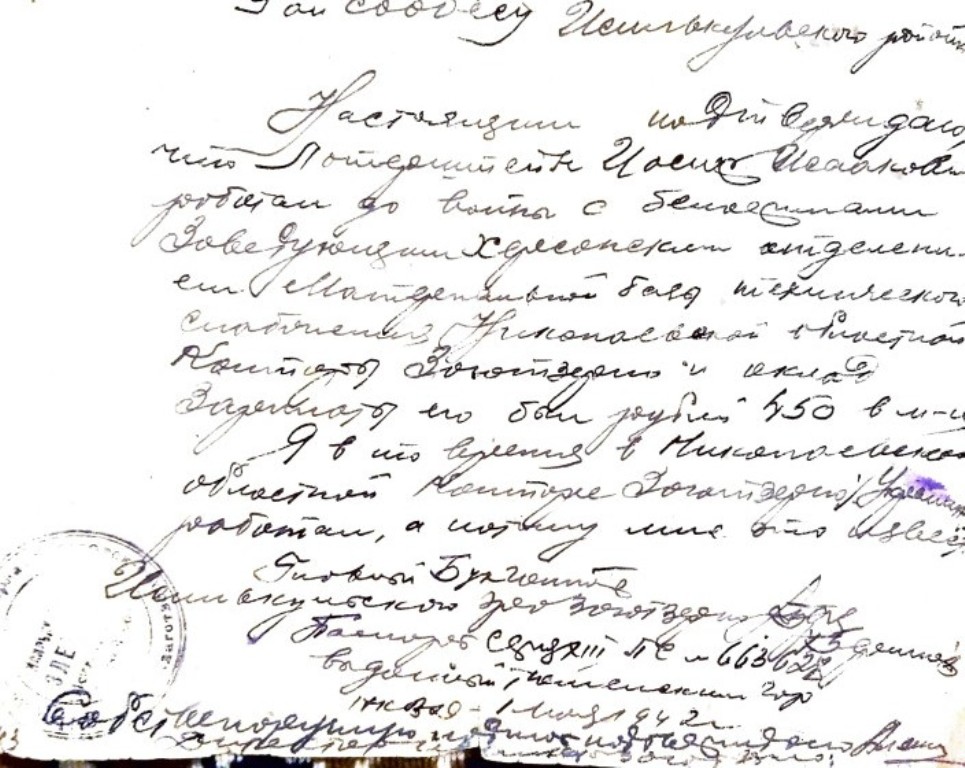 Рай собесу Исилькульского района
Настоящим подтверждаю
что Иосиф Исаакович
работал до войны с белофинами
Заведующим Херсонским отделени-
ем Материальной базы технического
снабжения Николаевской областной
Конторы Заготзерно и оклад
Зарплаты его был рублей 450 в м-ц
Я в то время в Николаевской
областной Конторе Заготзерно
работал, а потому мне это извест
Главный Бухгалтер
Исилькульского Заготзерно
Паспорт серия III № 663628
выданный Тюменским гор
1942г
Собственоручную подпись подтверждаю